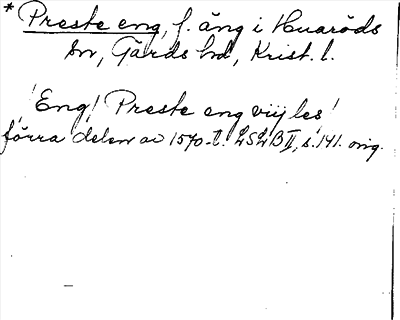 * Preste eng, f. äng i Huaröds
sn, Gärds hd, Krist. l.
'Eng/ Preste eng viij les'
förra delen av 1570-t. LSLB II, s. 141. orig.